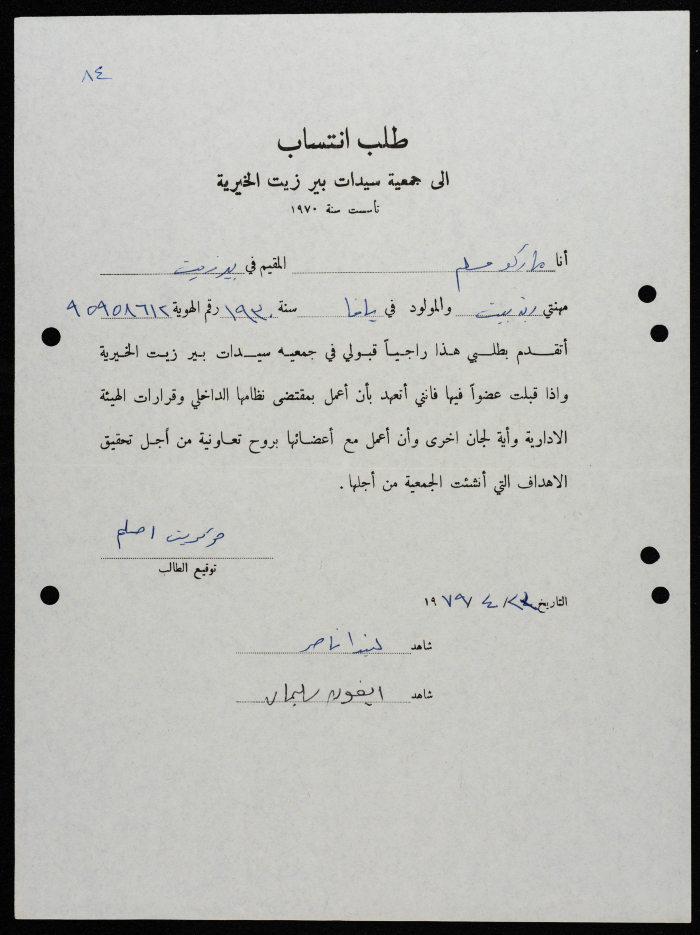 ٨٤
طلب انتساب
الى جمعية سيدات بير زيت الخيرية
تأسست سنة ١٩٧٠
أنا ماركو مسلم المقيم في بيرزيت
مهنتي ربة بيت والمولود في يافا سنة ١٩٣٠ رقم الهوية ٩٥٩٥٨٦١٢
أتقدم بطلبي هذا راجياً قبولي في جمعيه سيدات بير زيت الخيرية
واذا قبلت عضواً فيها فانني أتعهد بأن أعمل بمقتضى نظامها الداخلي وقرارات الهيئة
الادارية وأية لجان اخرى وأن أعمل مع أعضائها بروح تعاونية من أجل تحقيق
الاهداف التي أنشئت الجمعية من أجلها .
توقيع الطالب
التاريخ ٤ / ١٩٧٩
شاهد ليندا ناصر
شاهد ايفون سليمان